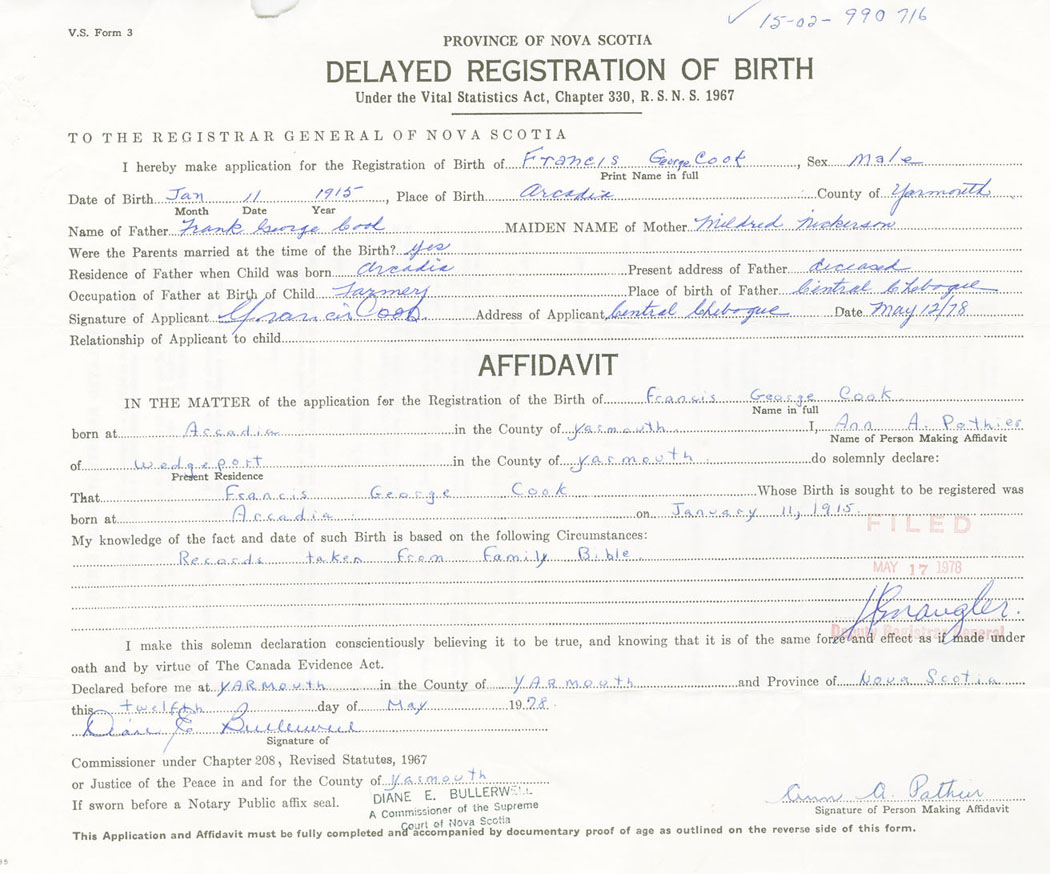 ✓ 15-02- 990 716
V.S. Form 3
PROVINCE OF NOVA SCOTIA
DELAYED REGISTRATION OF BIRTH
Under the Vital Statistics Act, Chapter 330, R. S. N. S. 1967
TO THE REGISTRAR GENERAL OF NOVA SCOTIA
I hereby make application for the Registration of Birth of Francis George Cook, Sex Male
Print Name in full
Date of Birth Jan 11 1915, Place of Birth Arcadia County of Yarmouth
Month Date Year
Name of Father Frank George Cook MAIDEN NAME of Mother Mildred Nickerson
Were the Parents married at the time of the Birth? yes
Residence of Father when Child was born Arcadia Present address of Father deceased
Occupation of Father at Birth of Child Farmer Place of birth of Father Central Chebogue
Signature of Applicant Francis Cook. Address of Applicant Central Chebogue Date May 12/78
Relationship of Applicant to child
AFFIDAVIT
IN THE MATTER of the application for the Registration of the Birth of Francis George Cook
Name in full
born at Arcadia in the County of Yarmouth I, Ann A. Pothier
Name of Person Making Affidavit
of Wedgeport in the County of Yarmouth do solemnly declare:
Present Residence
That Francis George Cook Whose Birth is sought to be registered was
born at Arcadia on January 11, 1915.
FILED
My knowledge of the fact and date of such Birth is based on the following Circumstances:
Records taken from Family Bible
MAY 17 1978
Deputy Registrar General
I make this solemn declaration conscientiously believing it to be true, and knowing that it is of the same force and effect as if made under
oath and by virtue of The Canada Evidence Act.
Declared before me at YARMouth in the County of YARmouth and Province of Nova Scotia
this twelfth day of May 1978.
Diane E Bullerwell
Signature of
Commissioner under Chapter 208, Revised Statutes, 1967
or Justice of the Peace in and for the County of Yarmouth
If sworn before a Notary Public affix seal.
DIANE E. BULLERWELL
A Commissioner of the Supreme
Court of Nova Scotia
Ann A. Pothier
Signature of Person Making Affidavit
This Application and Affidavit must be fully completed and accompanied by documentary proof of age as outlined on the reverse side of this form.